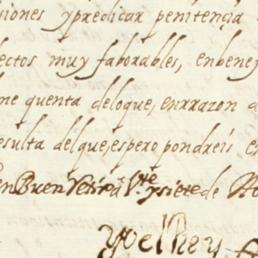 siones ypredicar penitençia
ectos muy faborables, enbenef
me quenta deloque, enrrazon d
esulta delque, espero pondreis e
en Buen Retiro a Vte ysiete de
yo el Rey